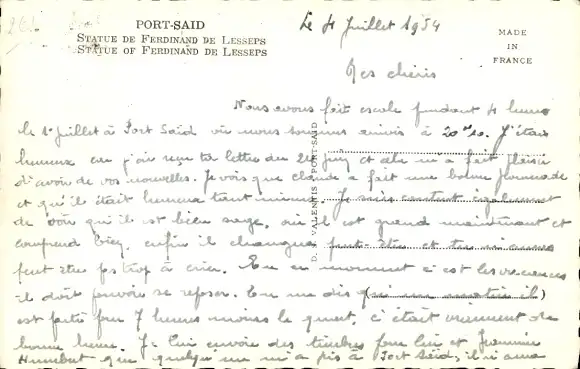 PORT-SAID
STATUE DE FERDINAND DE LESSEPS
STATUE OF FERDINAND DE LESSEPS
MADE
IN
FRANCE
Le 4 Juillet 1954
Mes chéris
Nous avons fait escale pendant 4 heures
le 1er Juillet à Port Saïd où nous sommes arrivés à J'étais
heureux car j'ai reçu ta lettre du 24 Juin et elle m'a fait plaisir
d'avoir de vos nouvelles. Je vois que Claude a fait une bonne promenade
et qu'il était heureux tout même. Je suis content également
de voir qu'il est bien sage, oui il est grand maintenant et
comprend bien, enfin il changera peut-être et tu n'auras
peut être pas trop à crier. En ce moment c'est les vacances
il doit pouvoir se reposer. Tu me dis qu'il
est parti pour 7 heures moins le quart, c'était vraiment de
bonne heure. Je lui envoie des timbres pour lui et
Humbert que quelqu'un m'a pris à Port Saïd, il m'a
D. VALENTIS PORT-SAID